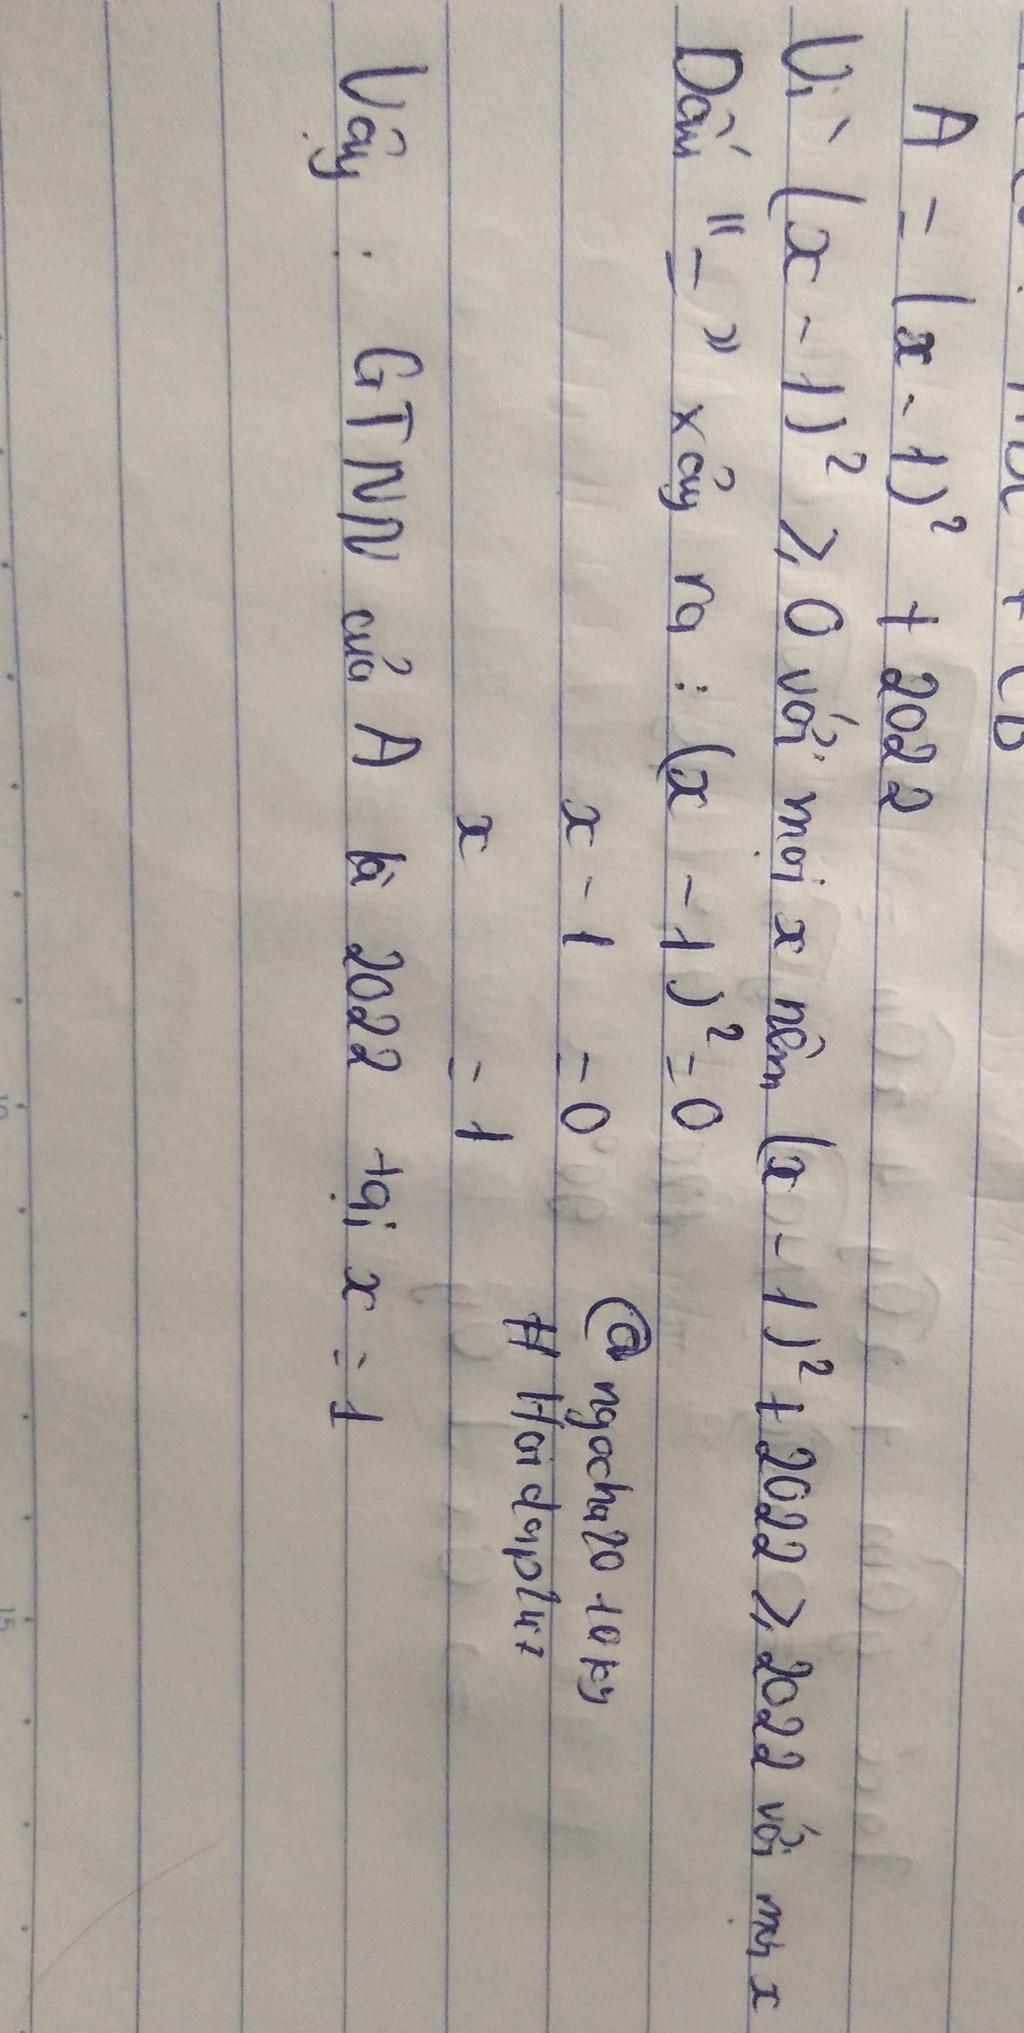 A = (x - 1)² + 2022
Vì (x - 1)² ⩾ 0 với mọi x nên (x - 1)² + 2022 ⩾ 2022 với mọi x
Dấu "=" xảy ra : (x - 1)² = 0
x - 1 = 0
x = 1
@ngocha2010ky
#Hoidap247
Vậy : GTNN của A là 2022 tại x = 1
10
15